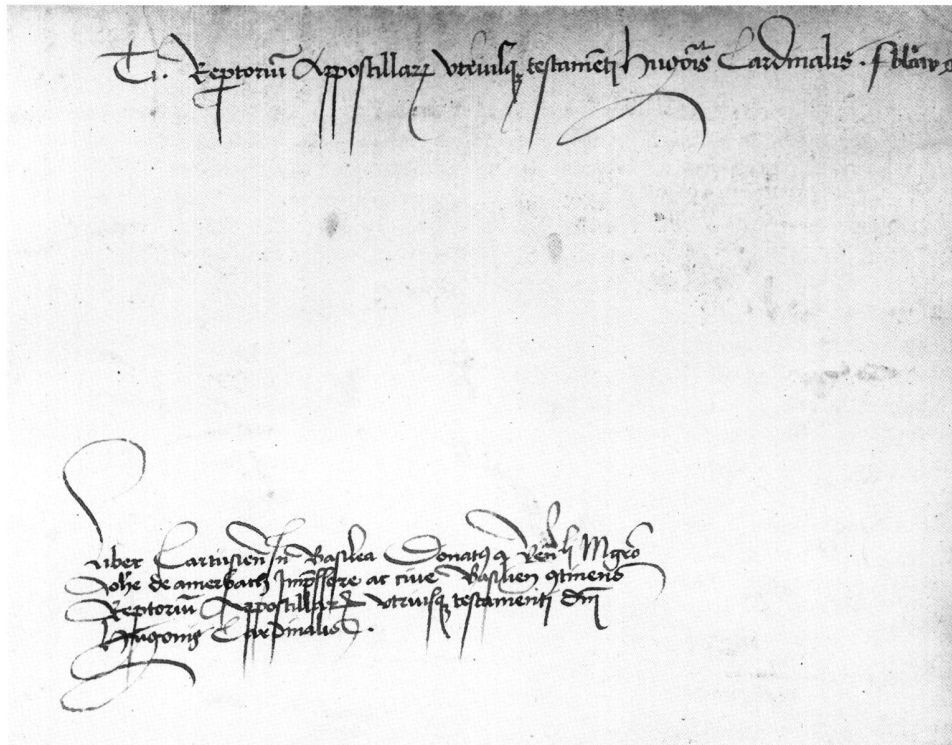 Reptoriū Appostillarꝝ vtriusqꝫ testamēti Hugōis Cardinalis .
Liber Cartusien̄ in Basilea Donatꝰ a Mgro
Joh̄e de amerbach Imp̄ssore ac ciue Basilien̄ ꝯtinens
Reptoriū Appostillarꝝ vtriusqꝫ testamenti Dn̄i
Hugonis Cardinalis .